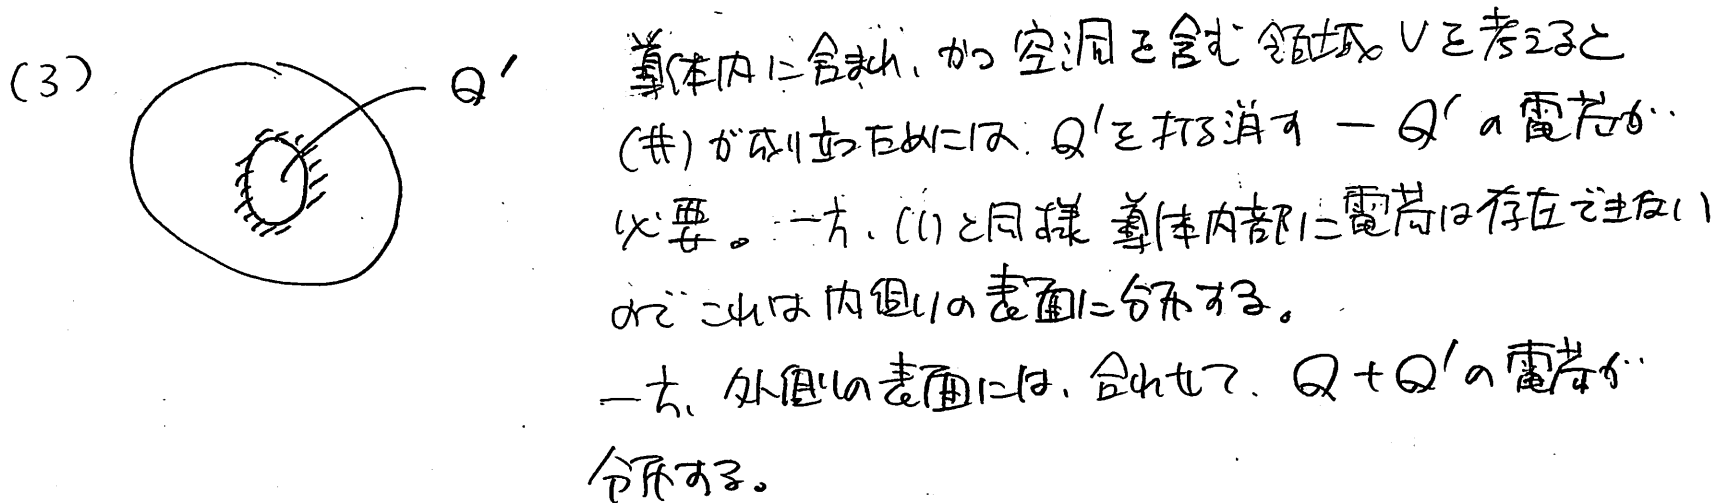 (3)
Q′
導体内に含まれ、かつ空洞を含む領域Vを考えると
(#)が成り立つためには、Q′を打ち消す −Q′の電荷が
必要。一方、(1)と同様 導体内部に電荷は存在できない
のでこれは内側の表面に分布する。
一方、外側の表面には、合わせて、Q+Q′の電荷が
分布する。